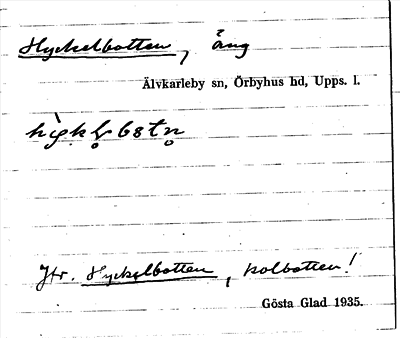 Hyckelbotten, äng
Älvkarleby sn, Örbyhus hd, Upps. l.
Jfr. Hyckelbotten, kolbotten!
Gösta Glad 1935.